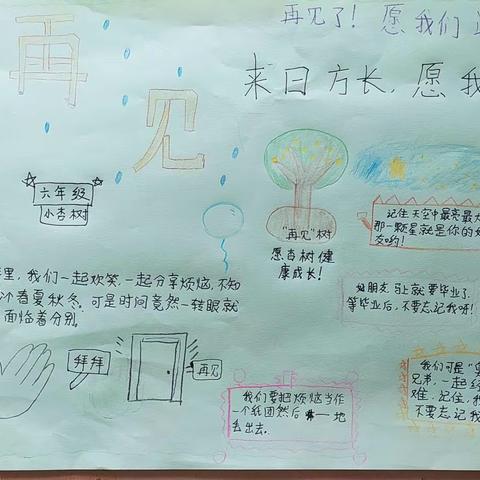 再见
再见了！愿我们
来日方长，愿我
六年级
小杏树
"再见"树
愿杏树健
康成长！
记住天空中最亮最大
那一颗星就是你的好
友哟！
里，我们一起欢笑，一起分享烦恼，不知
个春夏秋冬，可是时间竟然一转眼就
面临着分别。
朋友马上就要毕业了，
等毕业后，不要忘记我呀！
拜拜
再见
我们要把烦恼当作
一个纸团然后一地
丢出去。
我们可是
兄弟，一起经
难，记住，我
不要忘记我